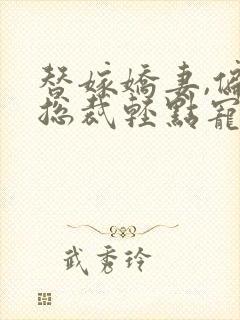 替嫁嬌妻,偏
總裁輕點寵
武秀玲